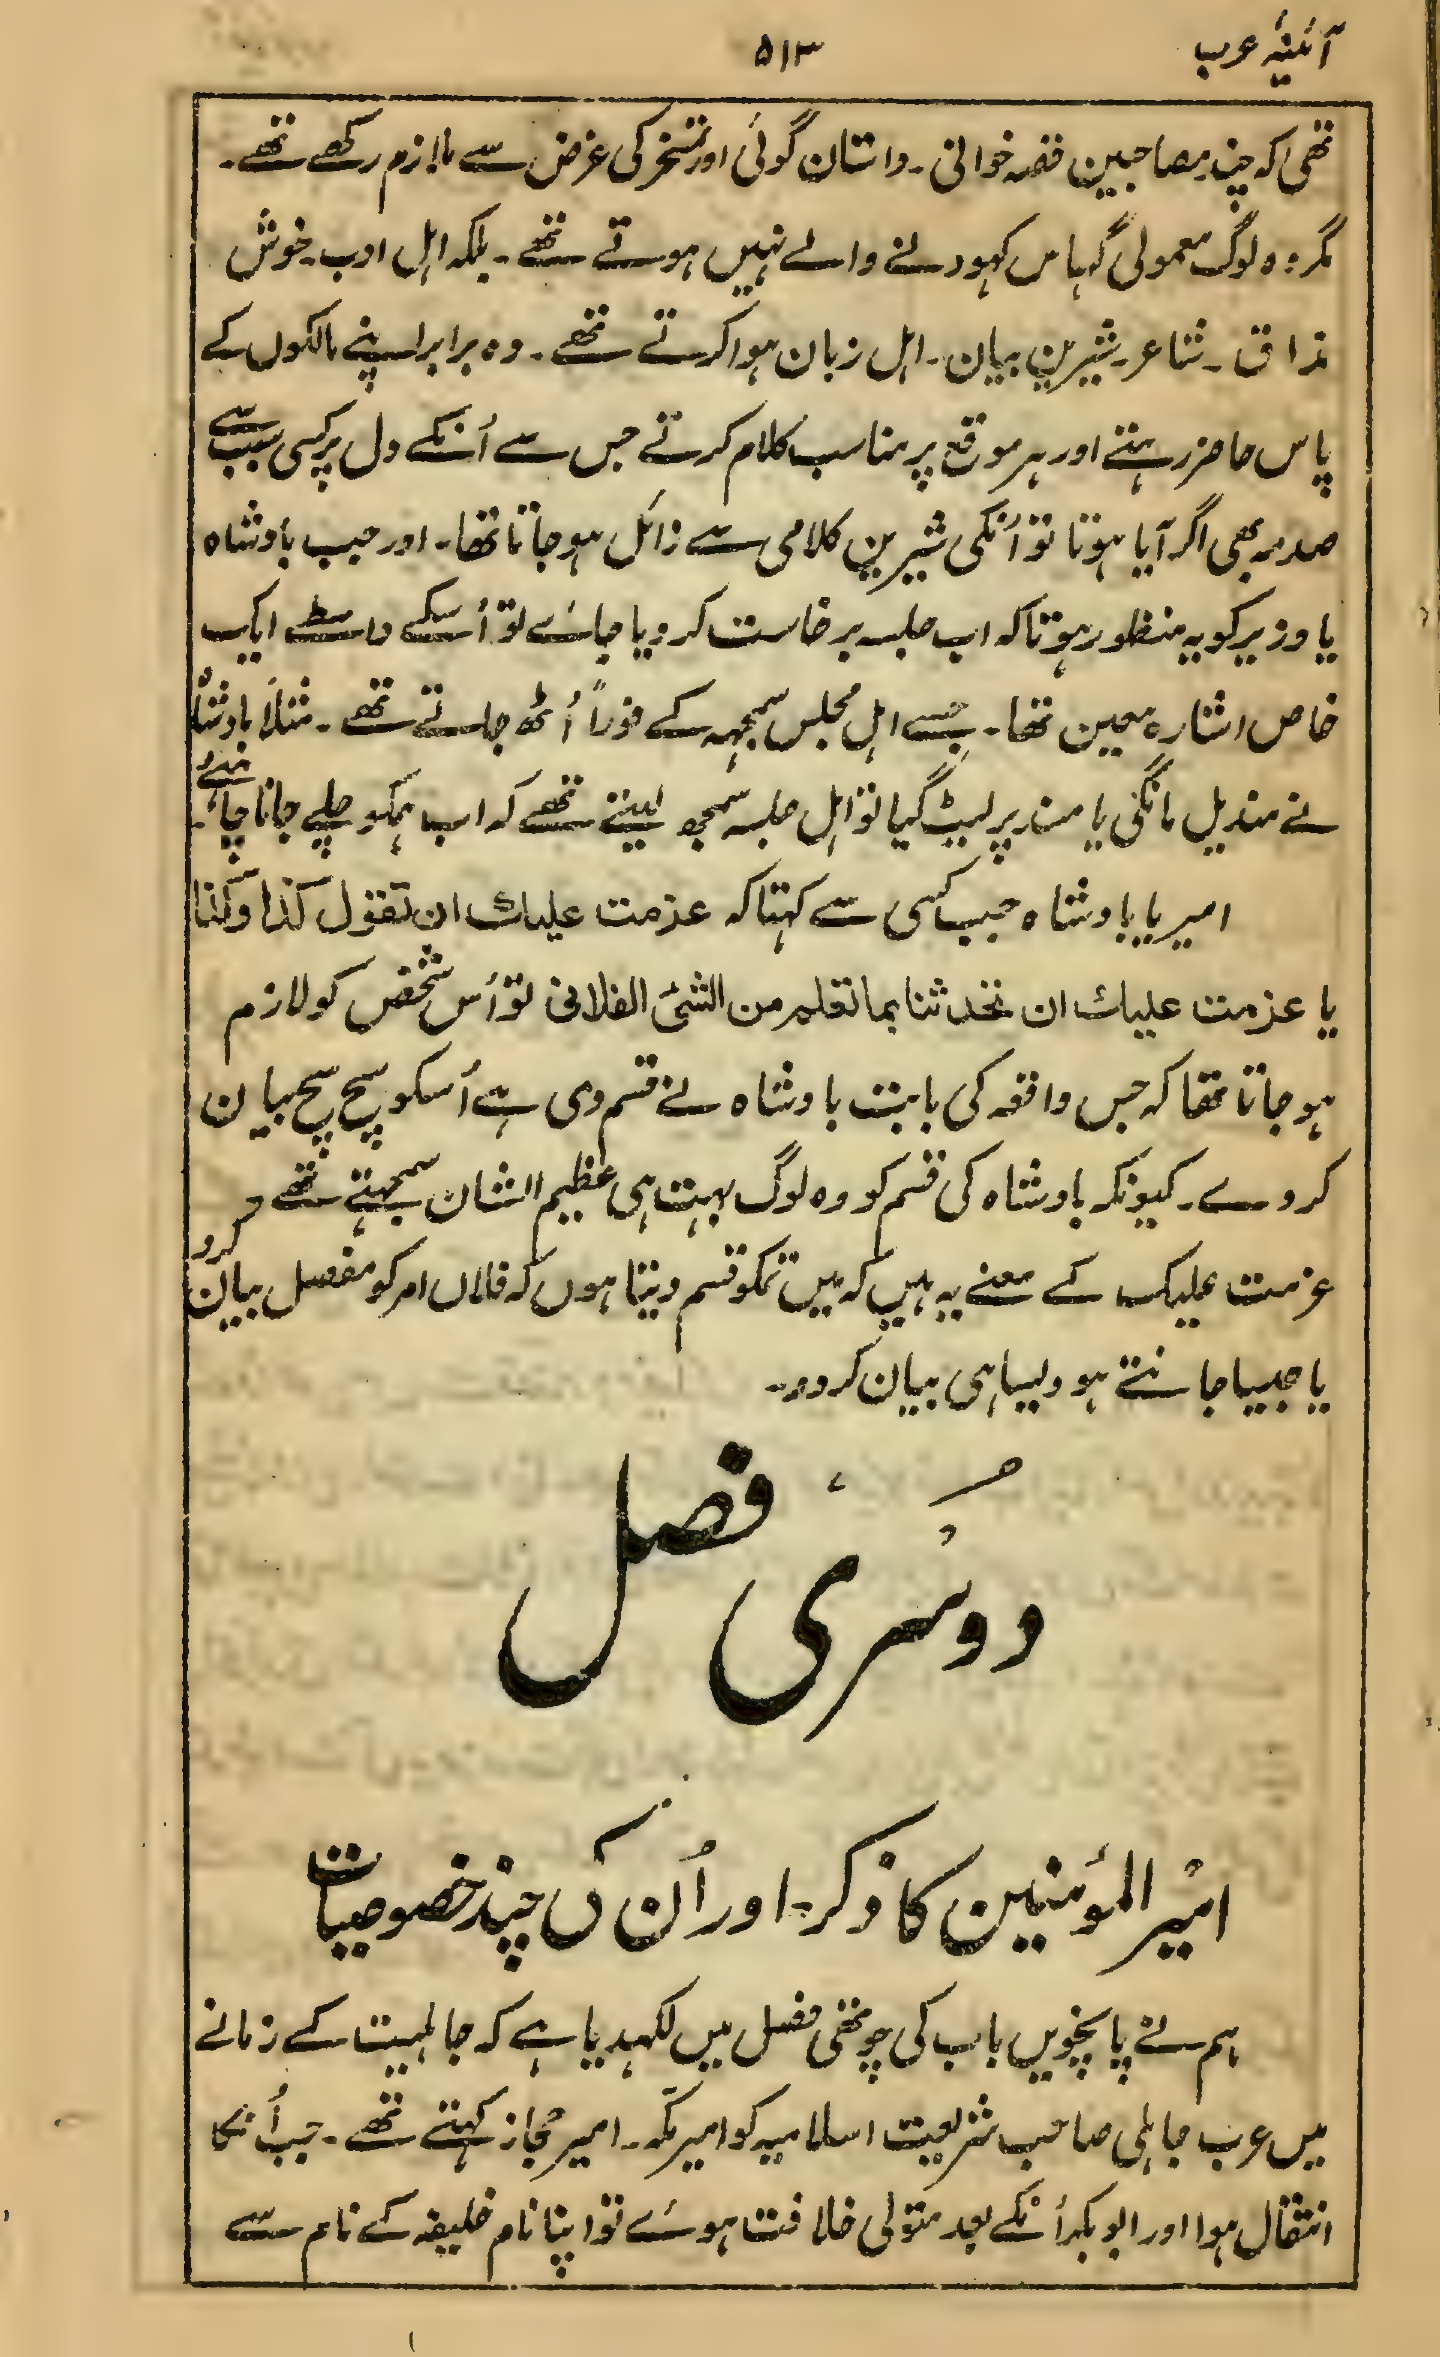 آئینۂ عرب
۵۱۳
تھی کہ چند مصاحبین قصہ خوانی۔ داستان گوئی اور تمسخر کی غرض سے ملازم رکھے تھے۔
مگر وہ لوگ معمولی گہاس کہودنے والے نہیں ہوتے تھے۔ بلکہ اہل ادب۔ خوش
مذاق۔ شاعر۔ شیرین بیان۔ اہل زبان ہوا کرتے تھے۔ وہ برابر اپنے مالکوں کے
پاس حاضر رہتے اور ہر موقع پر مناسب کلام کرتے جس سے اُنکے دل پر کسی سبب سے
صدمہ بھی اگر آیا ہوتا تو اُنکی شیرین کلامی سے زائل ہو جاتا تھا۔ اور جب بادشاہ
یا وزیر کو یہ منظور ہوتا کہ اب جلسہ برخاست کر دیا جائے تو اُسکے واسطے ایک
خاص اشارہ معین تھا۔ جسے اہل مجلس سمجہہ کے فوراً اُٹھ جاتے تھے۔ مثلاً بادشاہ
نے مندیل مانگی یا مسند پر لیٹ گیا تو اہل جلسہ سمجھ لیتے تھے کہ اب ہمکو چلے جانا چاہئے۔
امیر یا بادشاہ جب کسی سے کہتا کہ عزمت علیك ان تقول كذا وكذا
یا عزمت علیك ان تحدثنا بما تعلم من الشئ الفلانی تو اُس شخص کو لازم
ہو جاتا تھا کہ جس واقعہ کی بابت بادشاہ نے قسم دی ہے اُسکو سچ سچ بیان
کر دے۔ کیونکہ بادشاہ کی قسم کو وہ لوگ بہت ہی عظیم الشان سمجہتے تھے
عزمت علیک کے معنے یہ ہیں کہ میں تمکو قسم دیتا ہوں کہ فلاں امر کو مفصل بیان کرو
یا جیسا جانتے ہو ویسا ہی بیان کر دو۔
دوسری فصل
امیر المؤمنین کا ذکر۔ اور اُن کی چند خصوصیات
ہم نے پانچویں باب کی چوتھی فصل میں لکہدیا ہے کہ جاہلیت کے زمانے
میں عرب جاہلی صاحب شریعت اسلامیہ کو امیر مکّہ۔ امیر حجاز کہتے تھے۔ جب اُنکا
انتقال ہوا اور ابوبکر اُنکے بعد متولی خلافت ہوئے تو اپنا نام خلیفہ کے نام سے